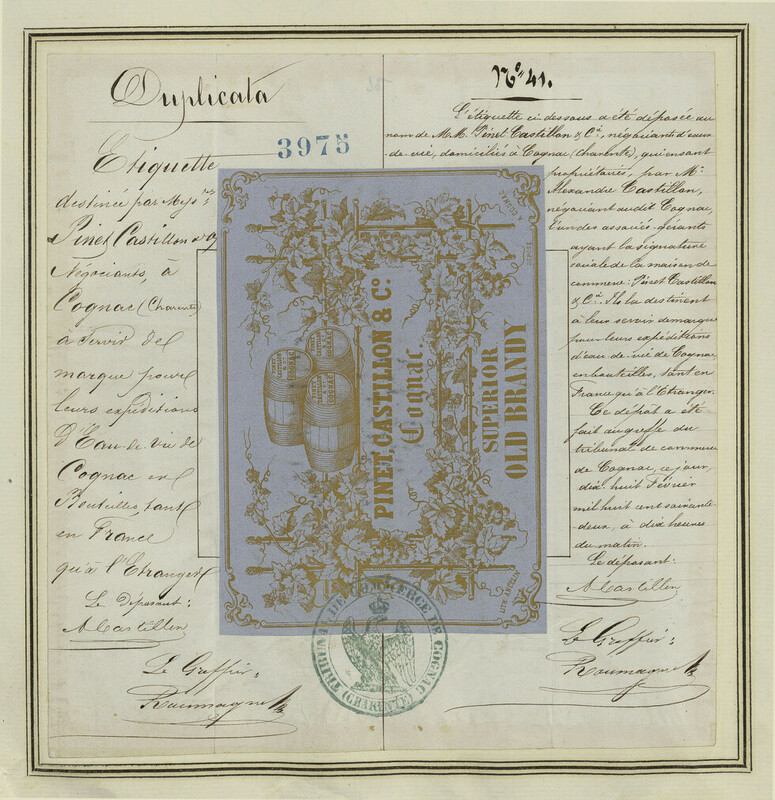 Duplicata
3975
Etiquette
destinée par Messrs
Pinet Castillon & Cie
Négociants, à
Cognac (Charente)
à Servir de
marque pour
leurs expéditions
d'Eau de vie de
Cognac en
Bouteilles, tant
en France
qu'à l'Etranger
Le Déposant:
A Castillon
Le Greffier:
Roumagne
No 41.
L'étiquette ci-dessous a été déposée au
nom de M.M. Pinet Castillon & Cie, négociants d'eaux-
de-vie, domiciliés à Cognac (Charente), qui en sont
propriétaires, par Mr
Alexandre Castillon,
négociant audit Cognac,
l'un des associés-gérants
ayant la signature
sociale de la maison de
commerce: Pinet Castillon
& Cie. Ils la destinent
à leur servir de marque
pour leurs expéditions
d'eau-de-vie de Cognac
en bouteilles, tant en
France qu'à l'Etranger.
Ce dépôt a été
fait au greffe du
tribunal de commerce
de Cognac, ce jour,
dix-huit Février
mil huit cent soixante
deux, à dix heures
du matin.
Le déposant:
A Castillon
Le Greffier:
Roumagne
PINET, CASTILLON & Co.
Cognac.
SUPERIOR
OLD BRANDY
PINET CASTILLON & Co COGNAC
PINET CASTILLON & Co COGNAC
PINET CASTILLON & Co COGNAC
DÉPOSÉ
LITH.
TRIBUNAL DE COMMERCE DE COGNAC
(CHARENTE)